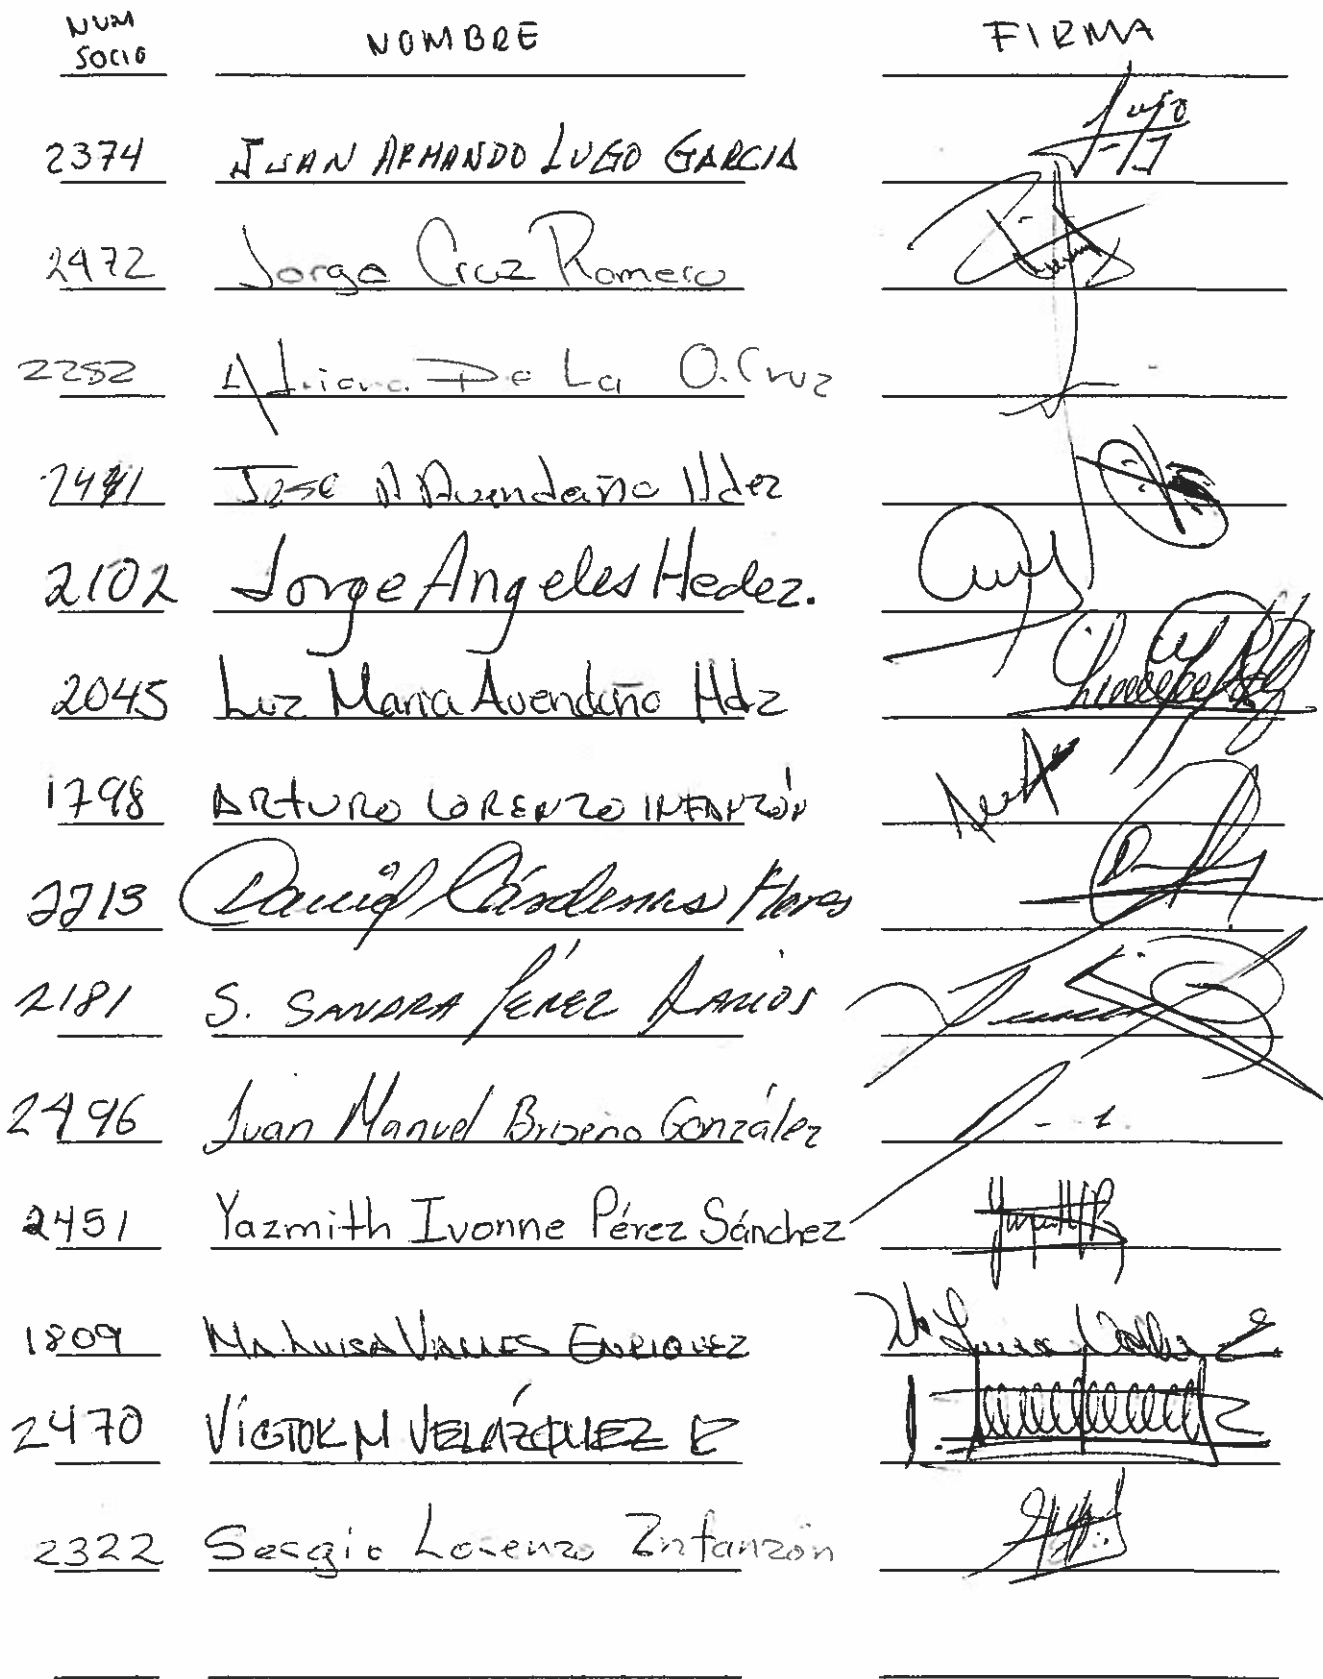 NUM SOCIO NOMBRE FIRMA
2374 JUAN ARMANDO LUGO GARCIA Lugo
2472 Jorge Cruz Romero
2252 Adriana De La O. Cruz
2441 Jose A Avendaño Hdez
2102 Jorge Angeles Hedez.
2045 Luz Maria Avendaño Hdz
1798 ARTURO LORENZO INFANZÓN
2213 David Cárdenas Flores
2181 S. SANDRA PÉREZ RAMOS
2496 Juan Manuel Briseño González
2451 Yazmith Ivonne Pérez Sánchez
1809 MA. LUISA VALLES ENRIQUEZ Ma Luisa Valles E
2470 VÍCTOR M VELÁZQUEZ E
2322 Sergio Lorenzo Infanzón